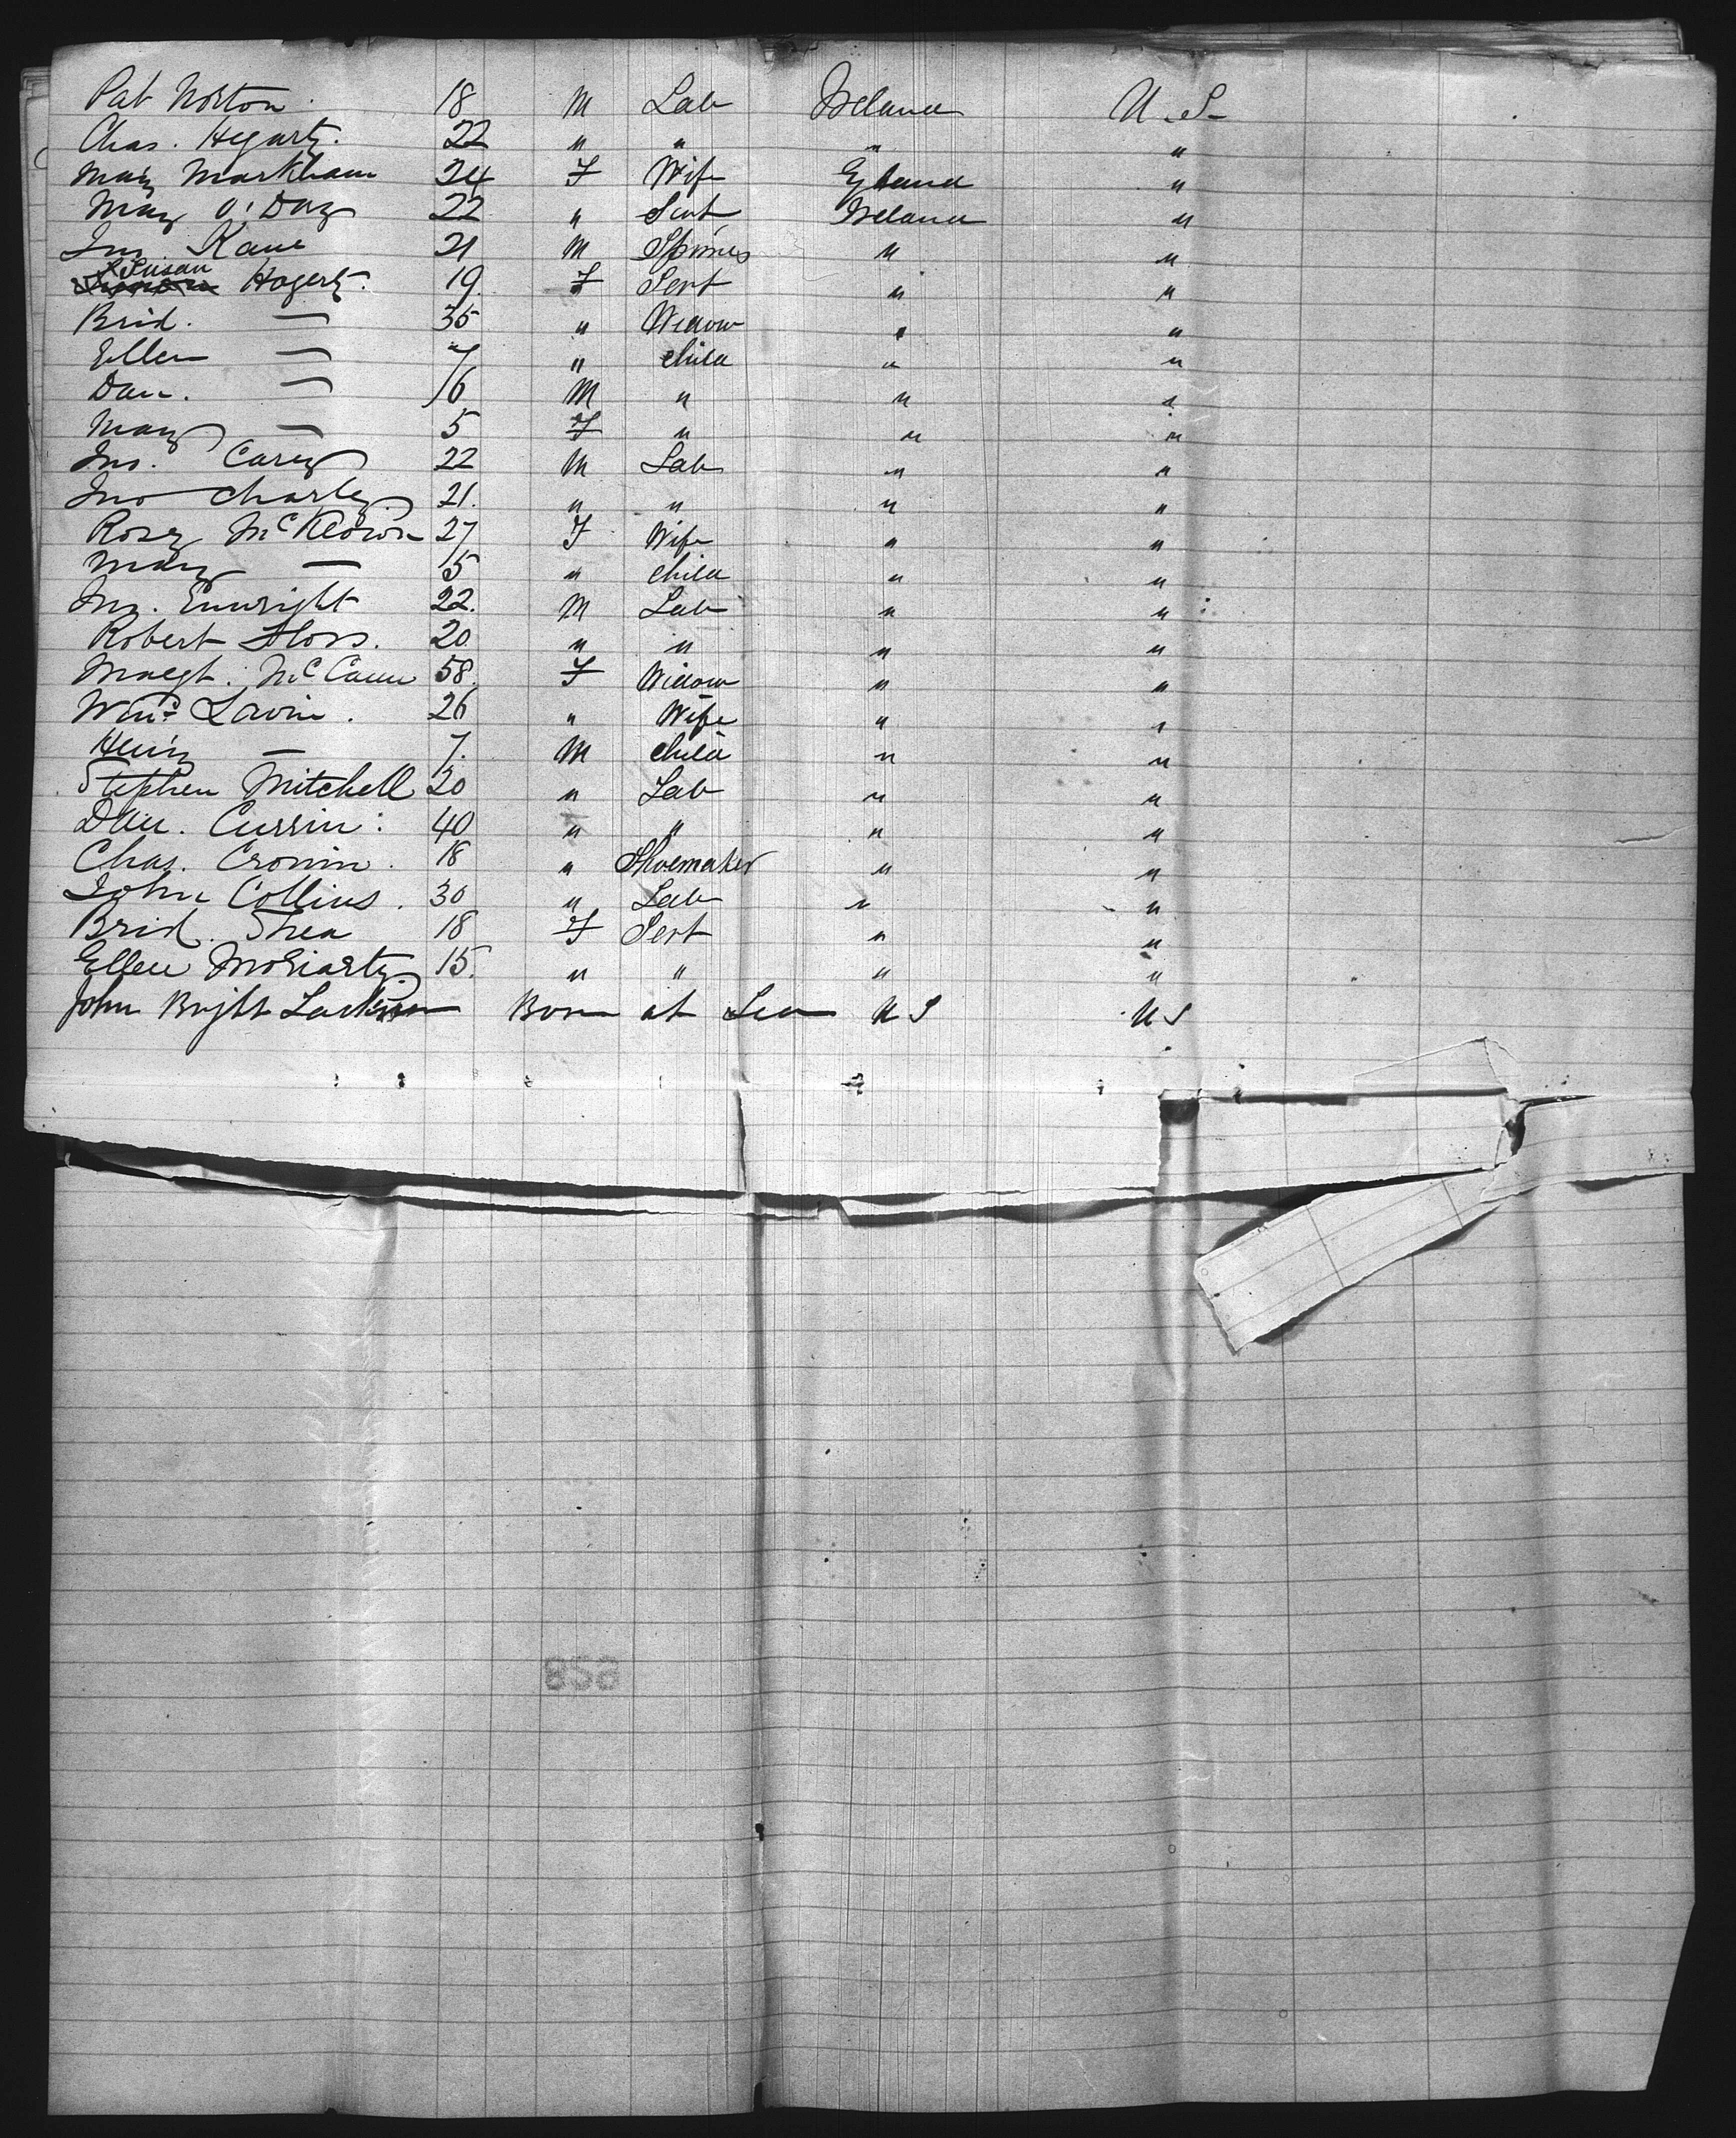 Pat Norton 18 M Lab Ireland U.S
Chas. Hegarty. 22 " " " "
Mary Markham 24 F Wife England "
Mary O'Day 22 " Sert Ireland "
Jno Kane 21 M " "
Susan Hogerty. 19 F Sert " "
Brid. — 35 " Widow " "
Ellen — 7 " Child " "
Dan. — 6 M " " "
Mary — 5 F " " "
Jno. Carey 22 M Lab " "
Jno Charley 21. " " " "
Rosy McKeown 27 F Wife " "
Mary — 5 " Child " "
Jno. Enwright 22. M Lab " "
Robert 20 " " " "
Margt. McCann 58. F Widow " "
Winf. Lavin. 26 " Wife " "
Henry — 7. M Child " "
Stephen Mitchell 20 " Lab " "
Dan. 40 " " " "
Chas. Cronin. 18 " Shoemaker " "
John Collins. 30 " Lab " "
Brid. Shea 18 F Sert " "
Ellen Moriarty 15. " " " "
John Bright Larkin Born at Sea U S U S
829